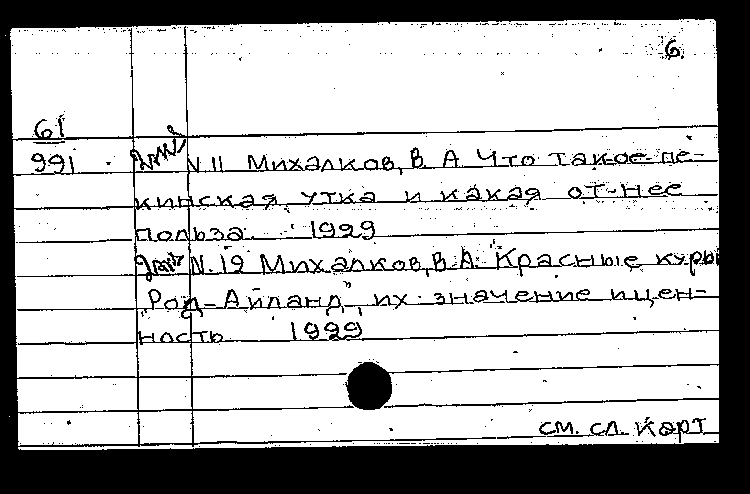 6.
61
991 V 11 Михалков, В. А. Что такое пе-
кинская утка и какая от нее
польза. 1929
N. 12 Михалков, В. А. Красные куры
„Род-Айланд", их значение и цен-
ность 1929
см. сл. карт